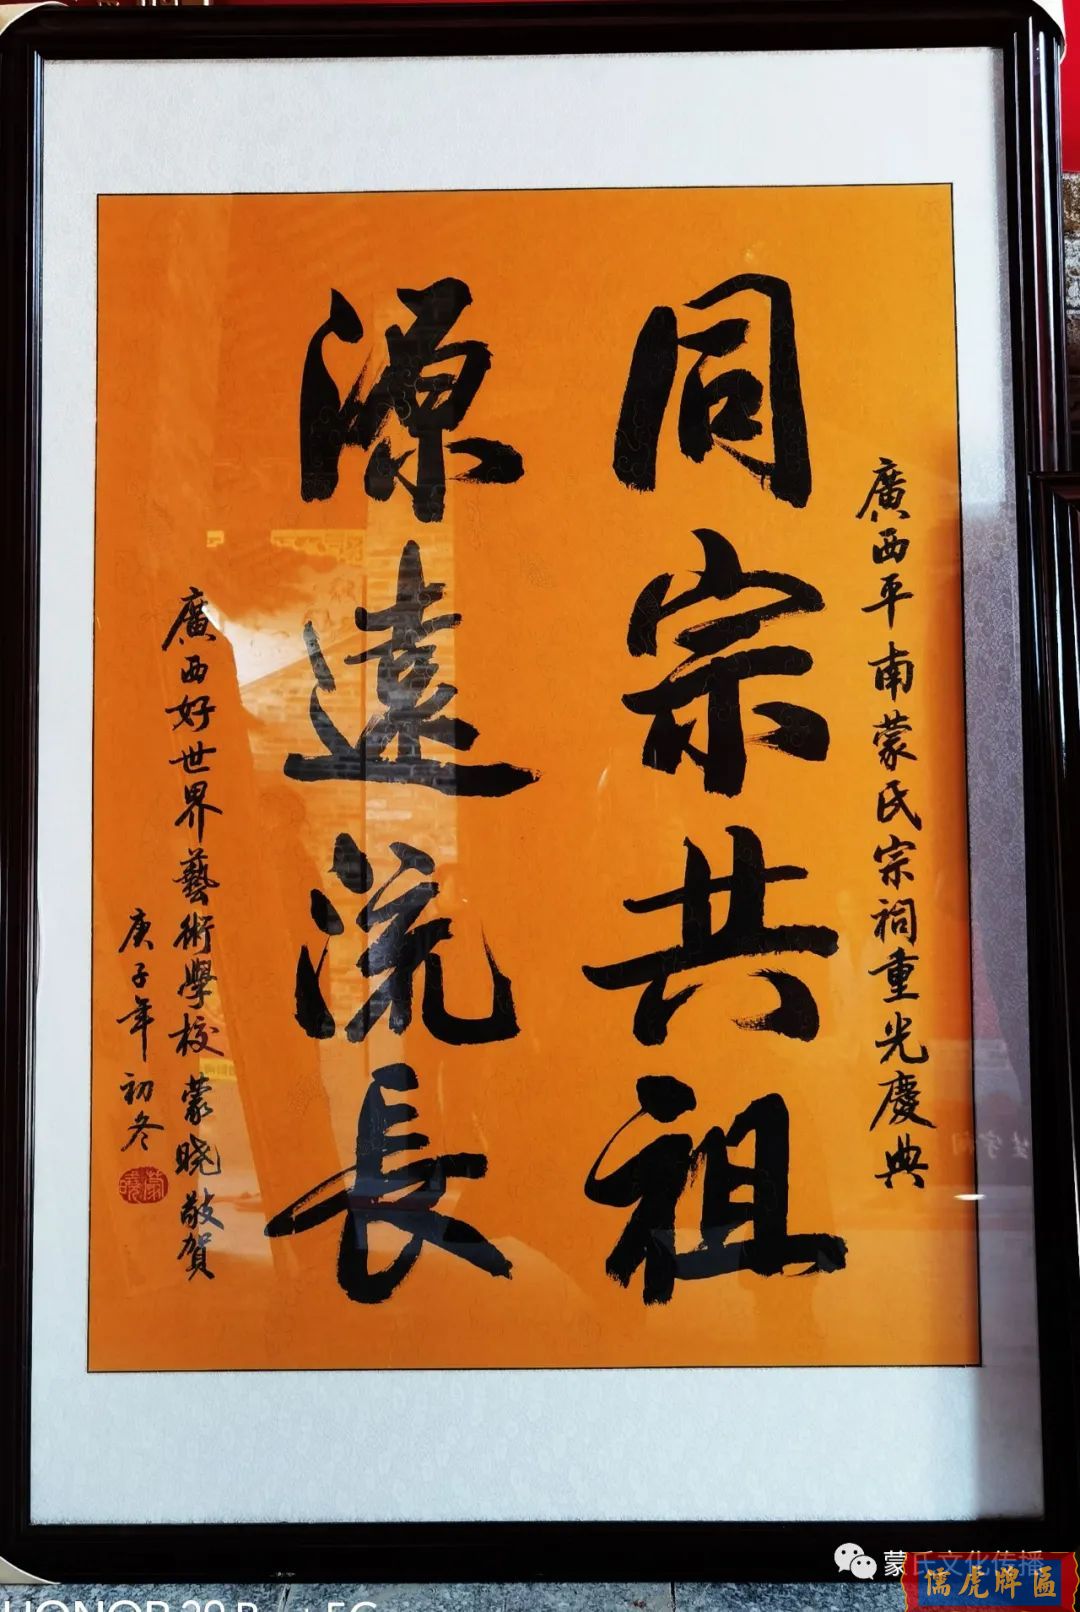 廣西平南蒙氏宗祠重光慶典
同宗共祖
源遠流長
廣西好世界藝術學校蒙晓敬賀
庚子年初冬
蒙氏文化传播
儒虎牌匾